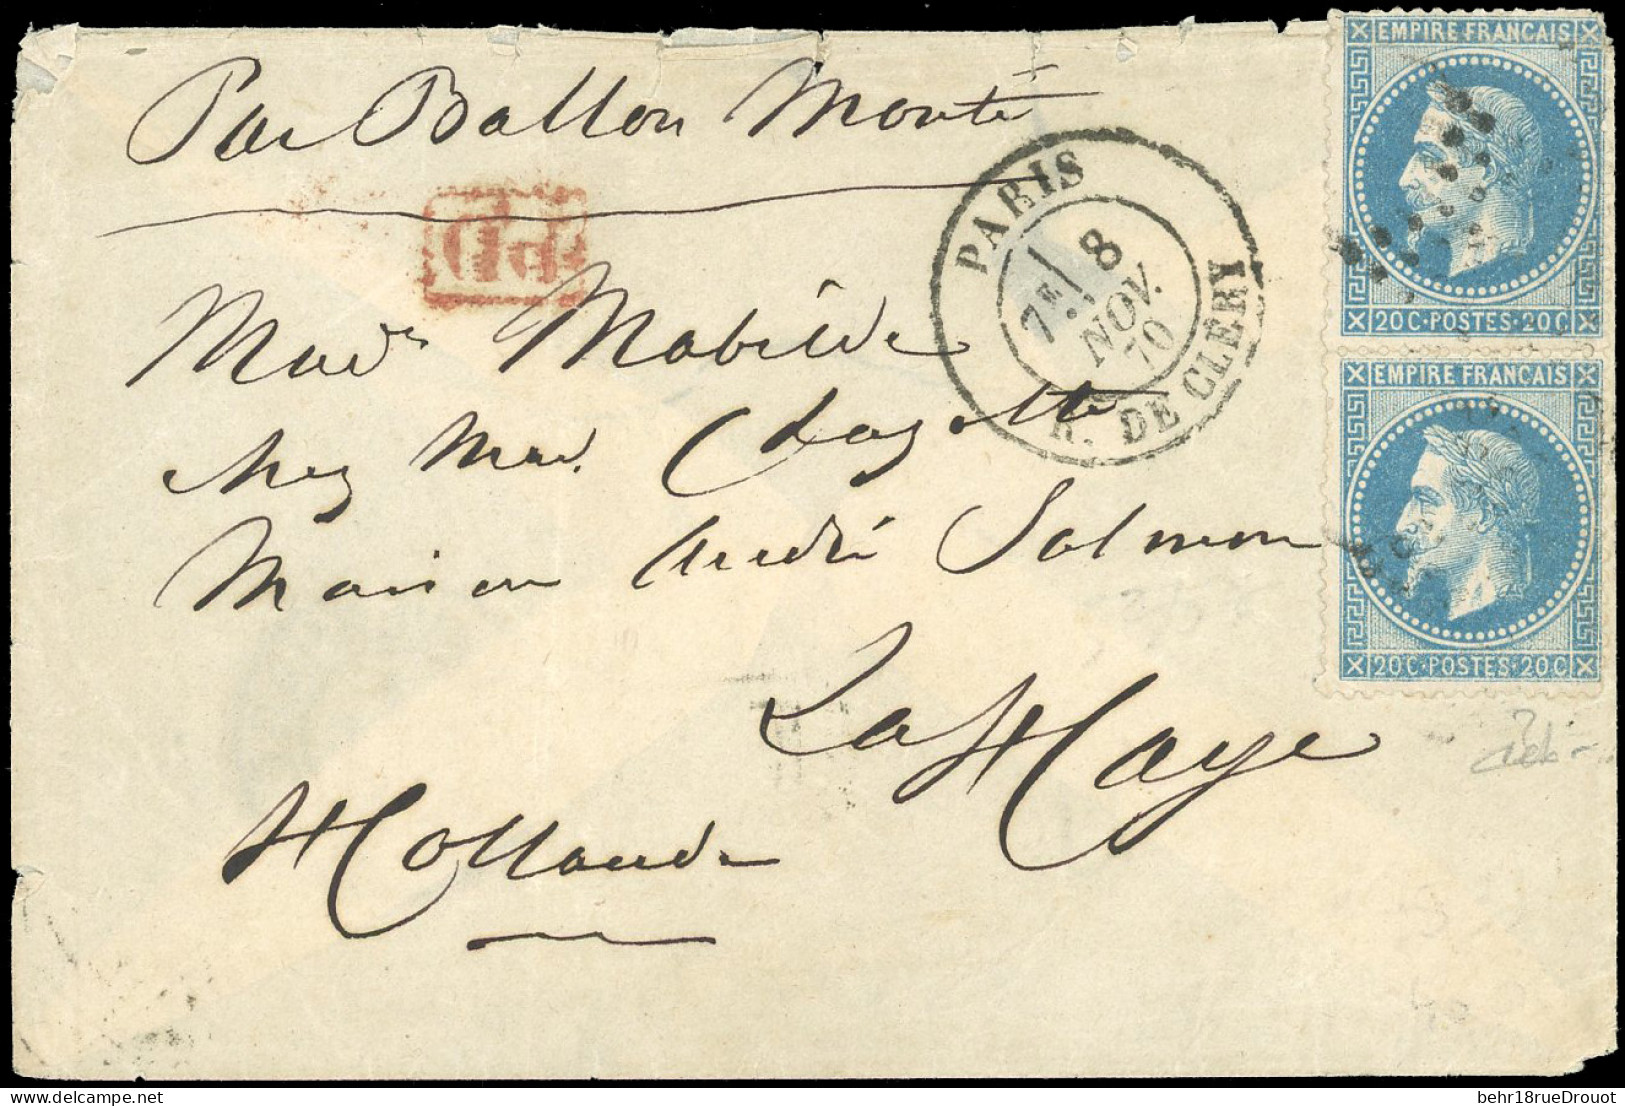 Par Ballon Monté
PD
PARIS
7E
8
NOV.
70
R. DE CLERY
EMPIRE FRANCAIS
20C·POSTES·20C
EMPIRE FRANCAIS
20C·POSTES·20C
Made Mabilde
chez Mad.
Maison André Salmon
La Haye
Hollande
behr18rueDrouot